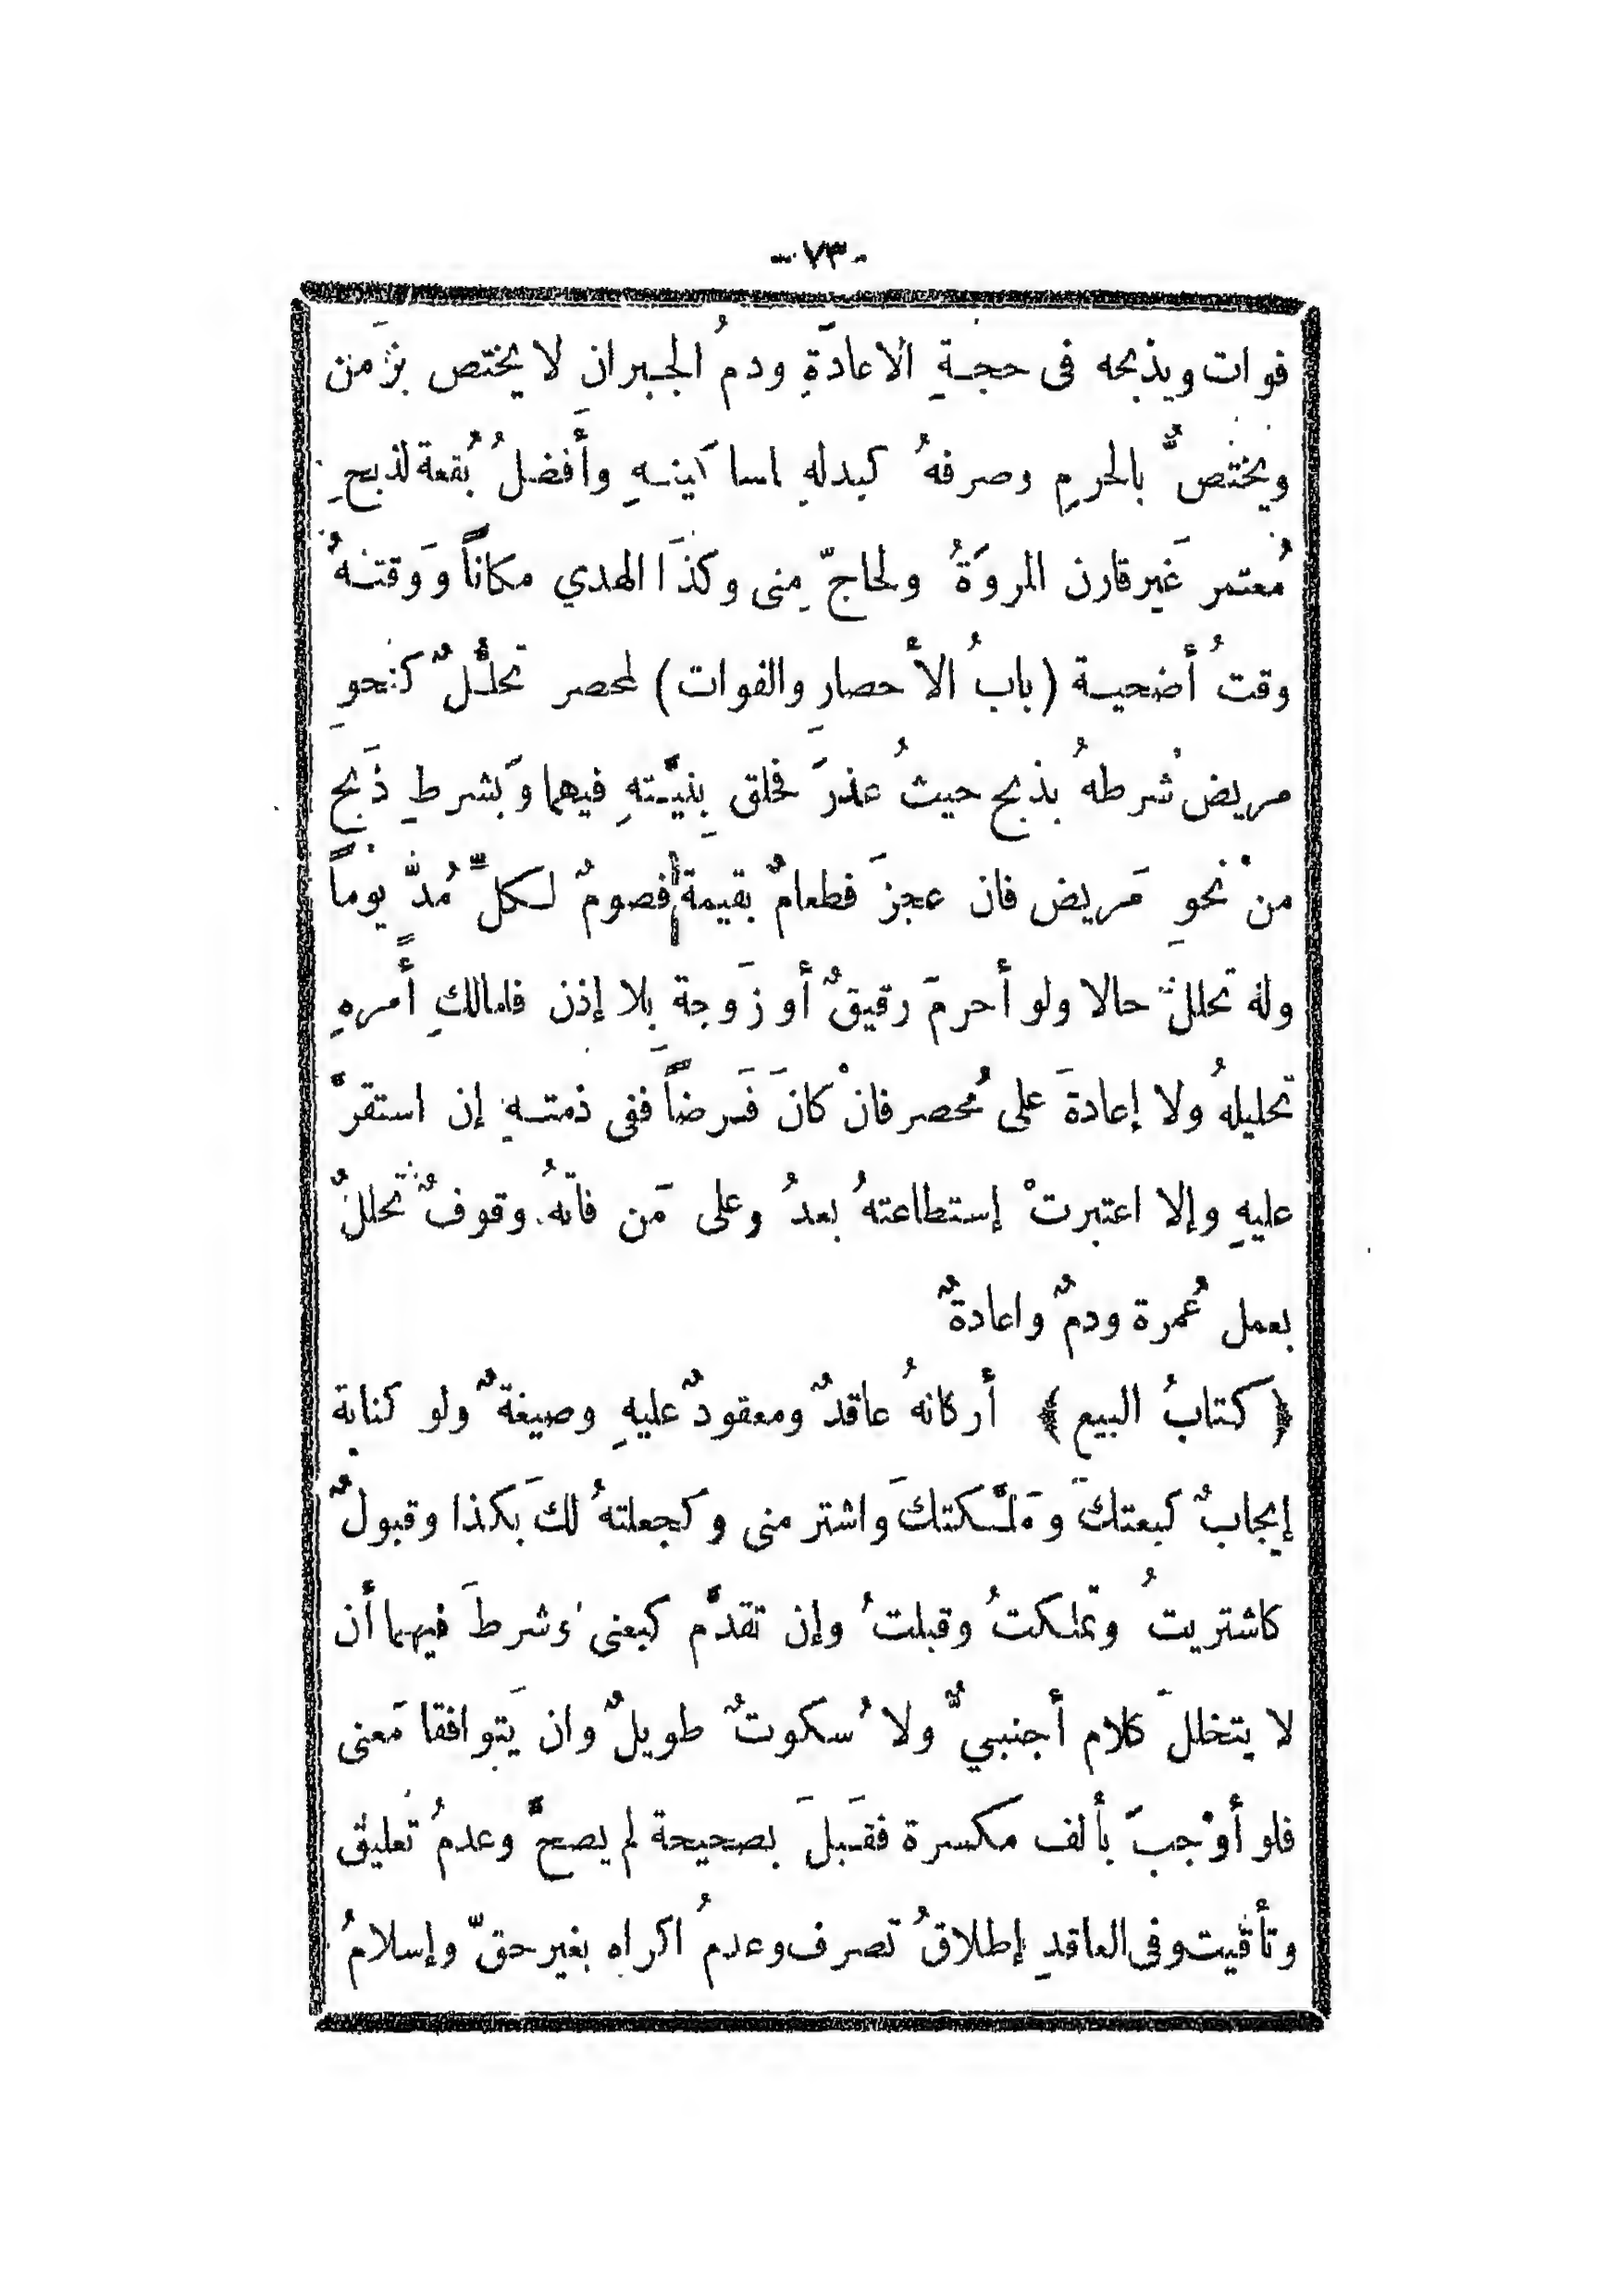 -٧٣-
فوات ويذبحه فى حجةِ الاعادَةِ ودمُ الجبرانِ لا يختص بزَمن
ويختصُّ بالحرمِ وصرفهُ كبدلهِ لمساكينهِ وأفضلُ بُقعة لذبحِ
مُعتمر غَير قارن المروَةُ ولحاجّ مِنى وكذَا الهدي مكاناً وَوقتهُ
وقتُ أضحية (بابُ الأحصارِ والفوات) لمحصر تحلّلٌ كنحوِ
مريض شرطهُ بذبح حيثُ عذرَ فحلق بِنيَّتهِ فيهما وَبشرطِ ذَبح
منْ نحوِ مَريض فان عجزَ فطعامٌ بقيمة فصومٌ لكلِّ مُدٍّ يوماً
ولهُ تحللٌ حالا ولو أحرمَ رقيقٌ أو زَوجة بِلا إذن فلمالكِ أَمرهِ
تحليلهُ ولا إعادةَ على مُحصر فانْ كانَ فَرضاً ففى ذمتهِ إن استقرَّ
عليهِ وإلا اعتبرتْ إستطاعتهُ بعدُ وعلى مَن فاتَهُ وقوفٌ تحللٌ
بعمل عُمرة ودمٌ واعادةٌ
﴿كتابُ البيع﴾ أركانهُ عاقدٌ ومعقودٌ عليهِ وصيغةٌ ولو كناية
إيجابٌ كبعتكَ وَملَّكتكَ واشتر منى وكجعلتهُ لكَ بكذا وقبولٌ
كاشتريتُ وتملكتُ وقبلتُ وإن تقدَّم كبعنى وشرطَ فيهما أن
لا يتخللَ كلام أجنبيٌّ ولا سُكوتٌ طويلٌ وان يَتوافقا مَعنى
فلو أوْجبَ بألف مكسرة فقَبلَ بصحيحة لم يصحَّ وعدمُ تَعليق
وتأقيت وفى العاقدِ إطلاقُ تصرف وعدمُ اكراه بغير حقّ وإسلامُ